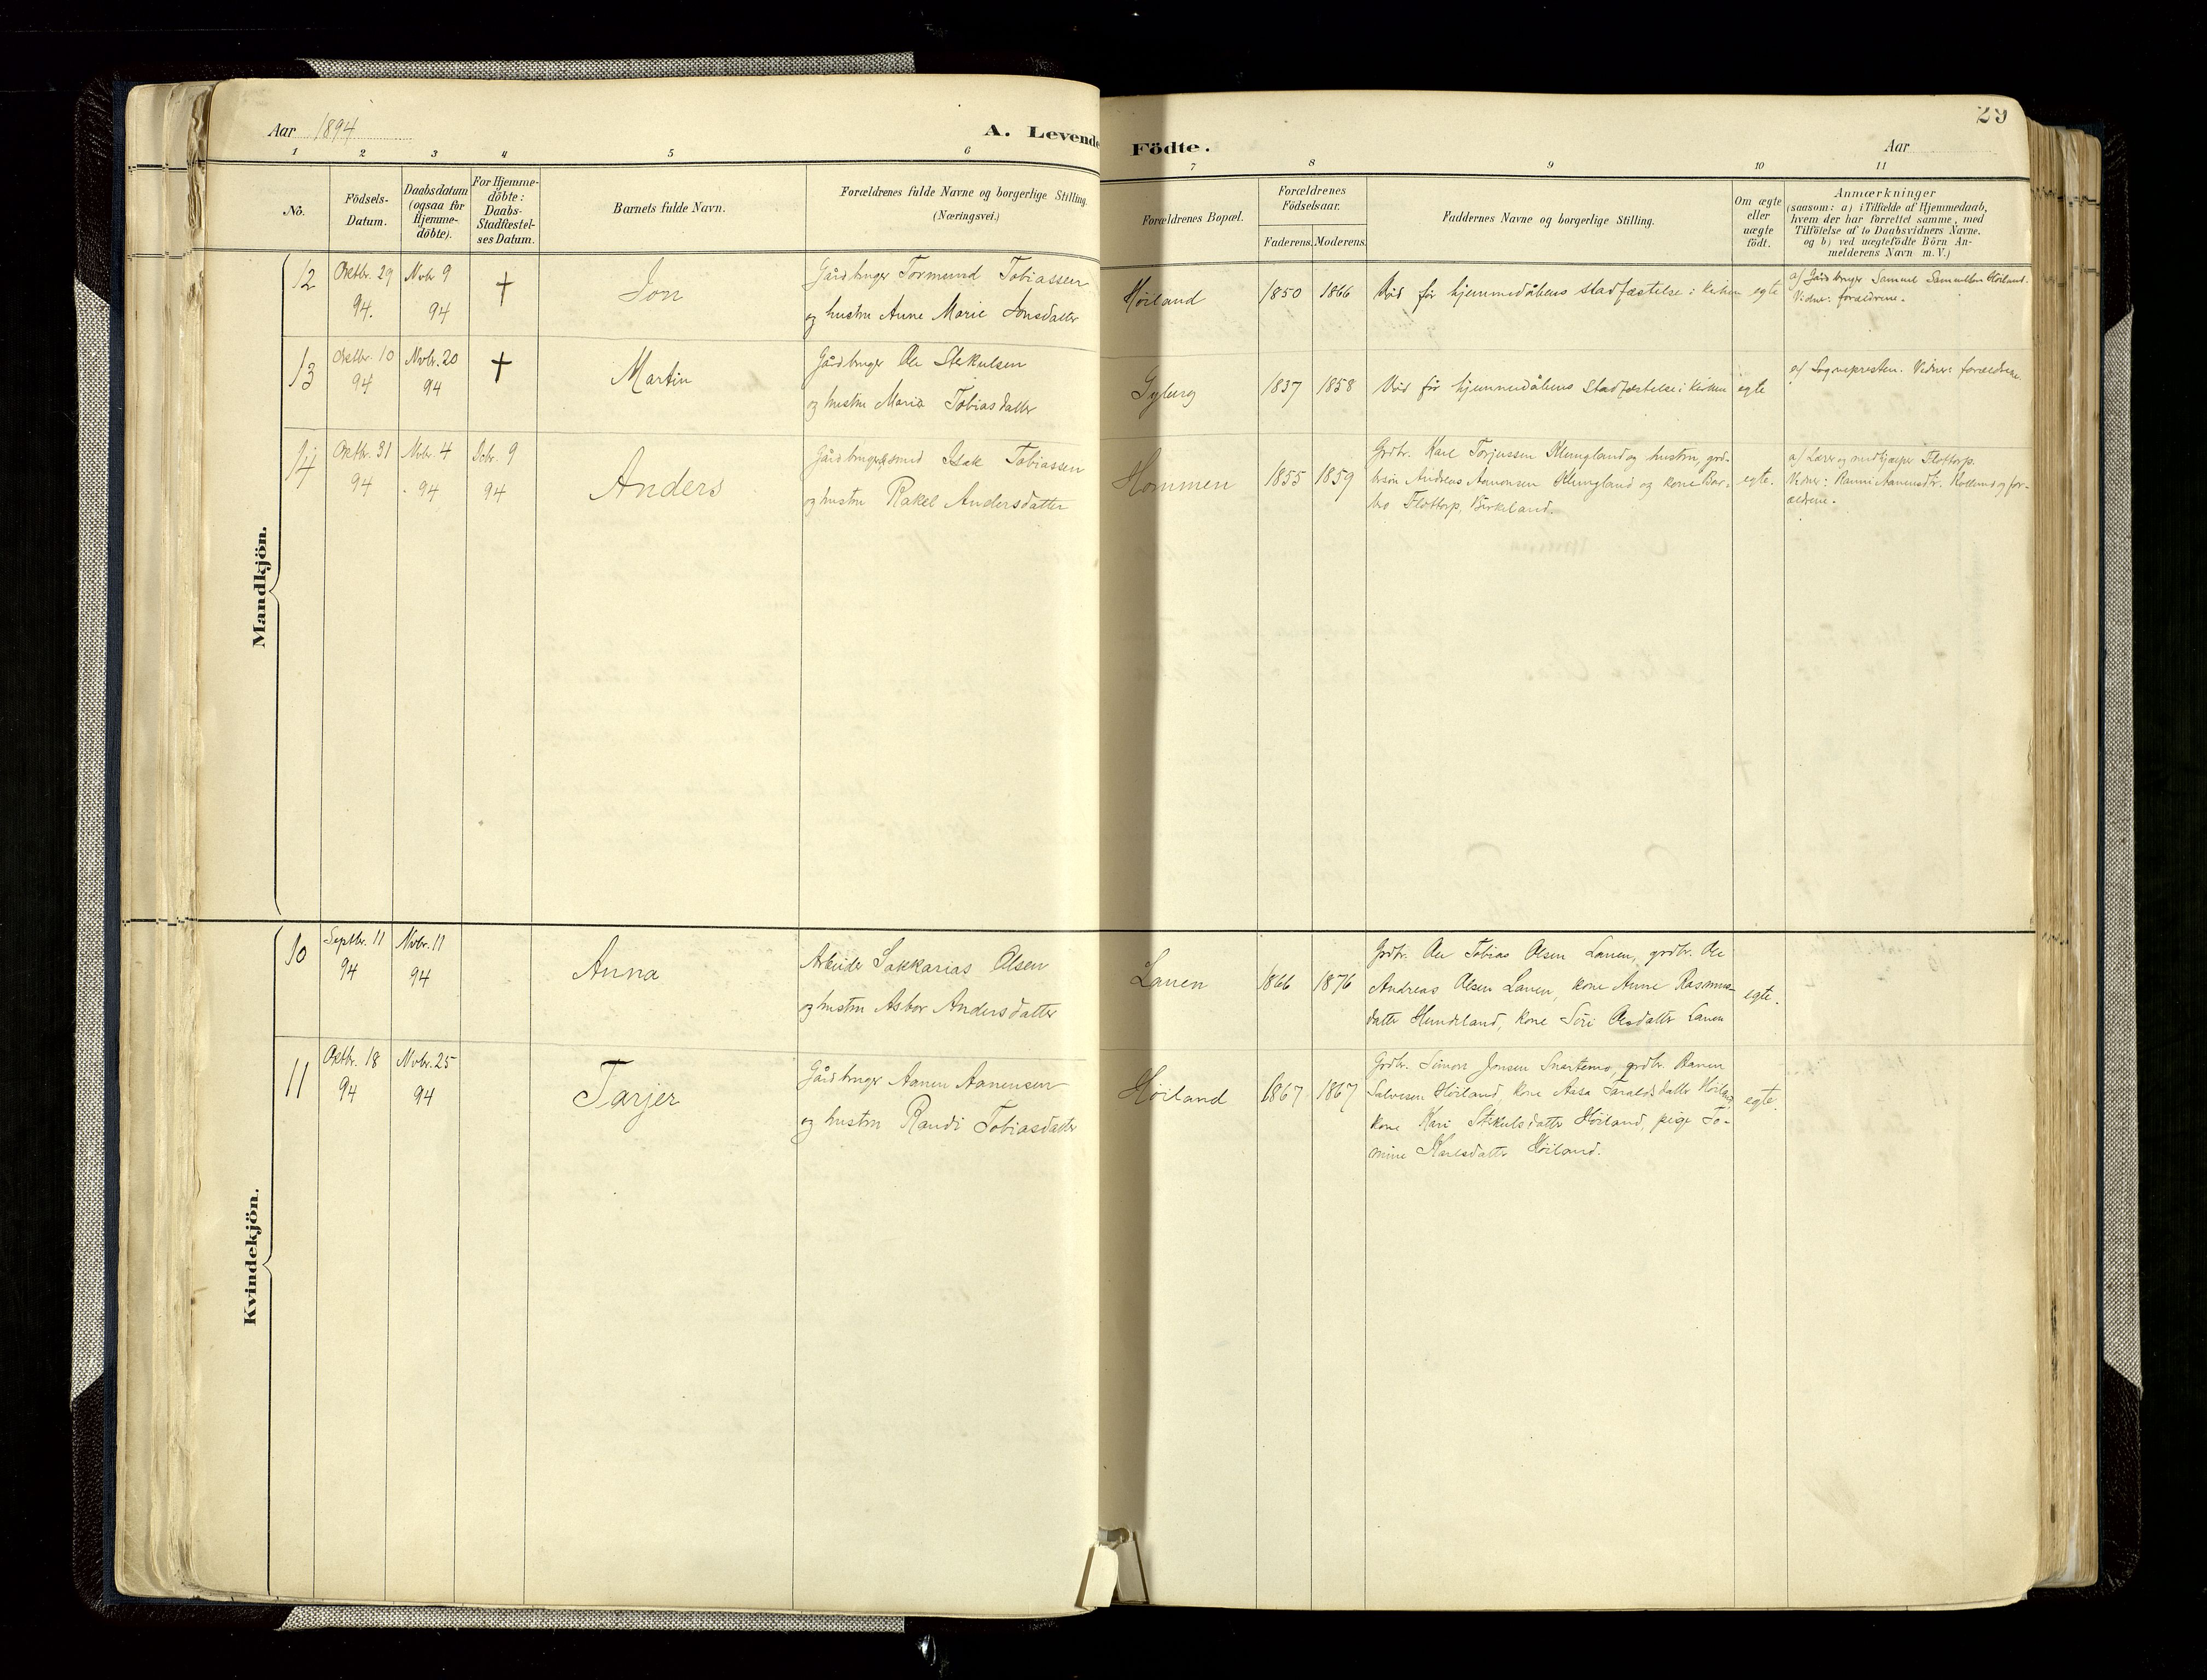 Aar 1894
A. Levende
Födte.
Aar
29
1 2 3 4 5 6 7 8 9 10 11
No.
Födsels-
Datum.
Daabsdatum
(ogsaa for
Hjemme-
döbte).
For Hjemme-
döbte:
Daabs-
Stadfæstel-
ses Datum.
Barnets fulde Navn.
Forældrenes fulde Navne og borgerlige Stilling.
(Næringsvei.)
Forældrenes Bopæl.
Forældrenes
Födselsaar.
Faderens. Moderens.
Faddernes Navne og borgerlige Stilling.
Om ægte
eller
uægte
födt.
Anmærkninger
(saasom: a) i Tilfælde af Hjemmedaab,
hvem der har forrettet samme, med
Tilföielse af to Daabsvidners Navne.
og b) ved uægtefödte Börn An-
melderens Navn m.V.)
Mandkjön.
12
Oktbr. 29
94.
Novbr 9
94
†
Jon
Gårdbruger Tormund Tobiassen
og hustru Anne Marie Jonsdatter
Høiland
1850
1866
Død før hjemmedåbens stadfæstelse i kirken
egte
a) Gårdbruger Samuel Samuelsen Høiland.
Vidner: forældrene.
13
Oktbr. 10
94
Novbr. 20
94
†
Martin
Gårdbruger Ole Stekulsen
og hustru Maria Tobiasdatter
Gyberg
1837
1858
Død før hjemmedåbens stadfæstelse i kirken
egte
a) Sognepresten. Vidner: forældrene.
14
Oktbr. 31
94
Novbr. 4
94
Dcbr. 9
94
Anders
Gårdbruger & smed Isak Tobiassen
og hustru Rakel Andersdatter
Hommen
1855
1859
Grdbr. Karl Torjussen Klungland og hustru, grd-
brsøn Andreas Aanonsen Klungland og kone Bar-
bro Flottorp, Birkeland.
egte.
a) Lærer og medhjælper Flottorp.
Vidner: og for-
ældrene.
Kvindekjön.
10
Septbr. 11
94
Novbr. 11
94
Anna
Arbeider Sakkarias Olsen
og hustru Asbor Andersdatter
Lauen
1866
1876
Grdbr. Ole Tobias Olsen Lauen, grdbr. Ole
Andreas Olsen Lauen, kone Anne Rasmus-
datter Hundeland, kone Siri Olsdatter Lauen
egte.
11
Oktbr. 18
94
Novbr. 25
94
Tarjer
Gårdbruger Aanen Aanensen
og hustru Randi Tobiasdatter
Høiland
1867
1867
Grdbr. Simon Jonsen Snartemo, grdbr. Aanen
Salvesen Høiland, kone Aasa Taraldsdatter Høiland,
kone Kari Stekulsdatter Høiland, pige To-
mine Karlsdatter Høiland.
egte.